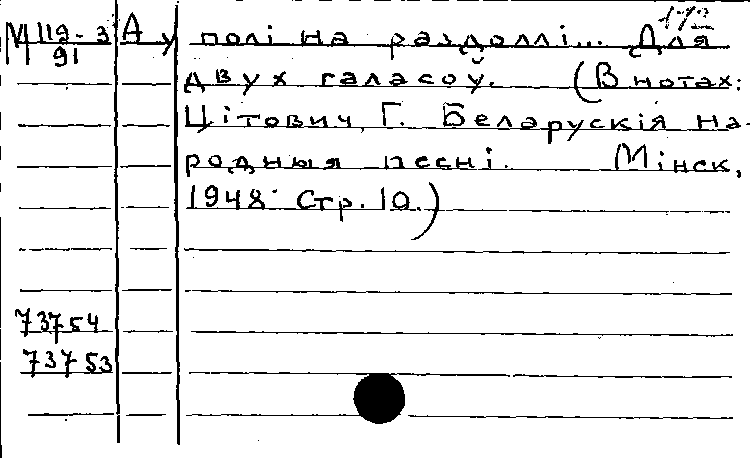 М 119-3 А у полі на раздоллі... Для
91 двух галасоў. (В нотах:
Цітович, Г. Беларускія на-
родныя песні. Мінск,
1948. Стр. 10.)
73754
73753